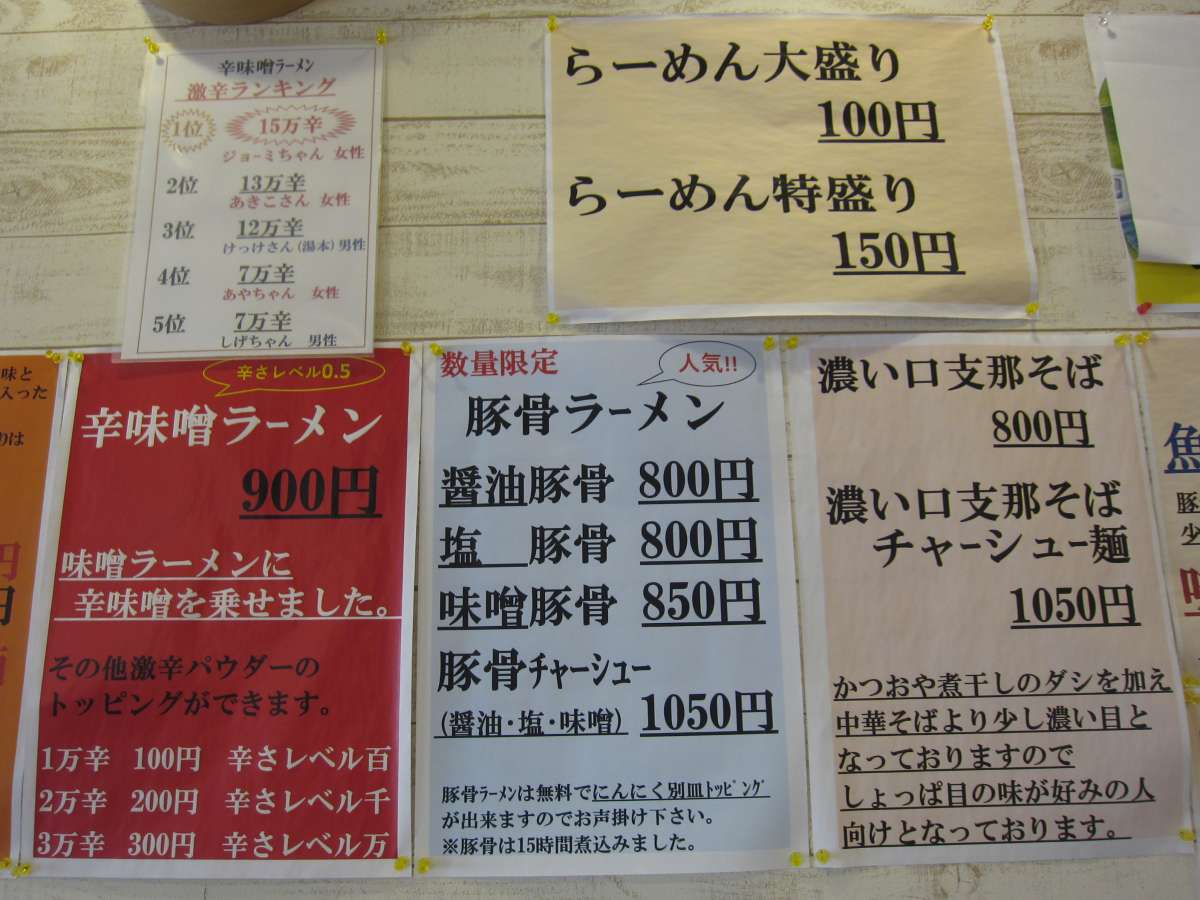 辛味噌ラーメン
激辛ランキング
1位 15万辛
ジョーミちゃん 女性
2位 13万辛
あきこさん 女性
3位 12万辛
けっけさん(湯本)男性
4位 7万辛
あやちゃん 女性
5位 7万辛
しげちゃん 男性
らーめん大盛り
100円
らーめん特盛り
150円
味と
入った
りは
円
円
辛さレベル0.5
辛味噌ラーメン
900円
味噌ラーメンに
辛味噌を乗せました。
その他激辛パウダーの
トッピングができます。
1万辛 100円 辛さレベル百
2万辛 200円 辛さレベル千
3万辛 300円 辛さレベル万
数量限定
人気!!
豚骨ラーメン
醤油豚骨 800円
塩 豚骨 800円
味噌豚骨 850円
豚骨チャーシュー
(醤油・塩・味噌) 1050円
豚骨ラーメンは無料でにんにく別皿トッピング
が出来ますのでお声掛け下さい。
※豚骨は15時間煮込みました。
濃い口支那そば
800円
濃い口支那そば
チャーシュー麺
1050円
かつおや煮干しのダシを加え
中華そばより少し濃い目と
なっておりますので
しょっぱ目の味が好みの人
向けとなっております。
魚
豚
少
味